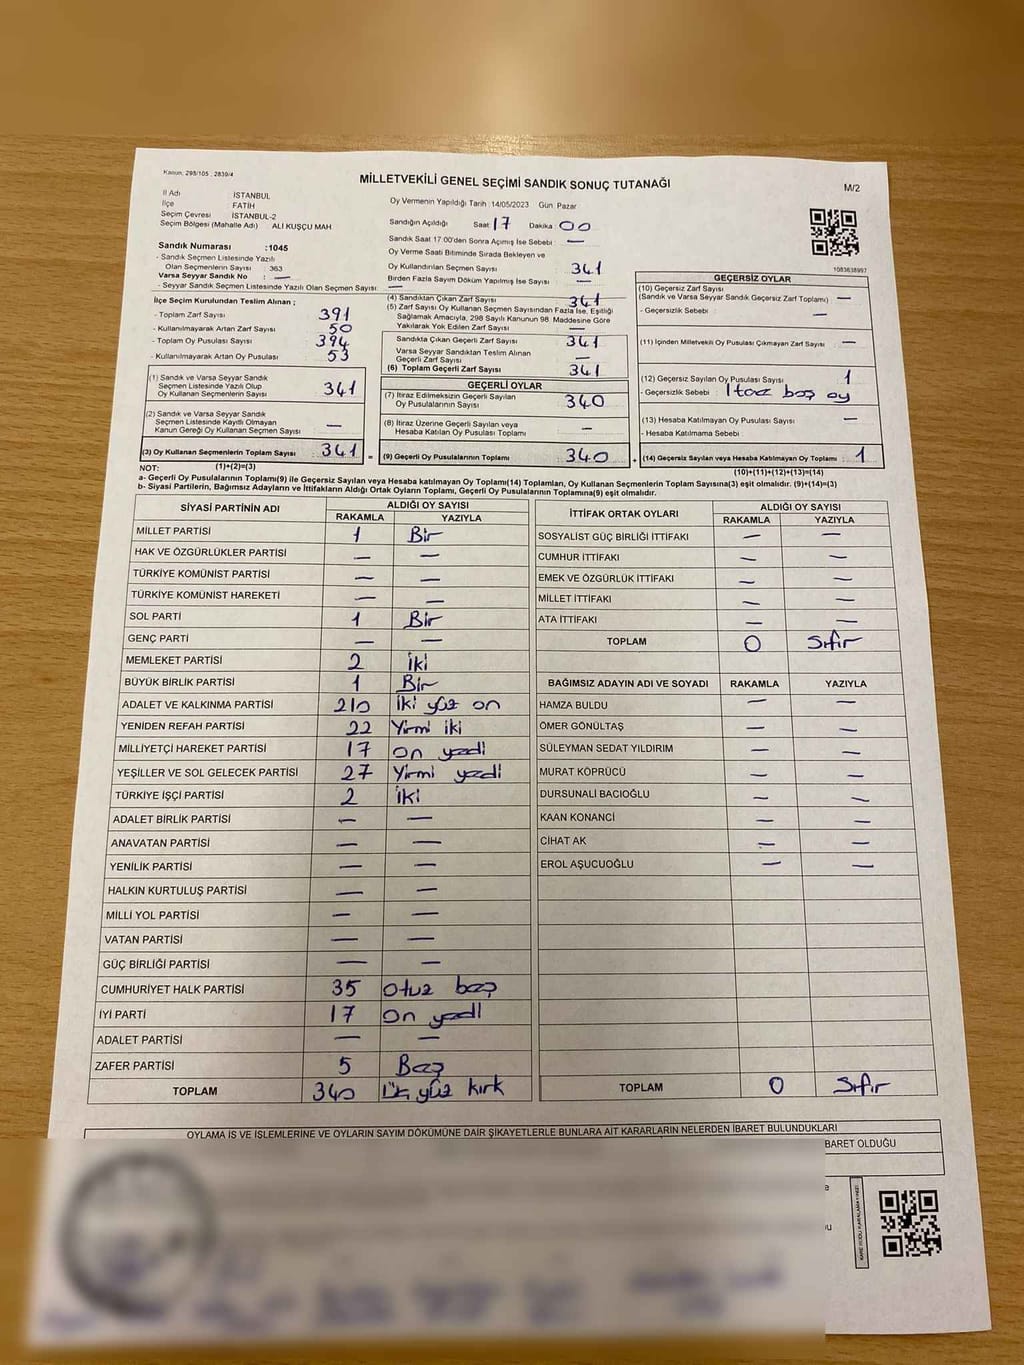 Kanun; 298/105 , 2839/4
MİLLETVEKİLİ GENEL SEÇİMİ SANDIK SONUÇ TUTANAĞI
M/2
İl Adı İSTANBUL
İlçe FATİH
Seçim Çevresi İSTANBUL-2
Seçim Bölgesi (Mahalle Adı) ALİ KUŞÇU MAH
Oy Vermenin Yapıldığı Tarih :14/05/2023 Gün :Pazar
Sandığın Açıldığı Saat: 17 Dakika : 00
Sandık Saat 17:00'den Sonra Açımış İse Sebebi : —
Oy Verme Saati Bitiminde Sırada Bekleyen ve
Oy Kullandırılan Seçmen Sayısı 341
Birden Fazla Sayım Döküm Yapılmış İse Sayısı : —
Sandık Numarası :1045
- Sandık Seçmen Listesinde Yazılı
Olan Seçmenlerin Sayısı 363
Varsa Seyyar Sandık No : —
- Seyyar Sandık Seçmen Listesinde Yazılı Olan Seçmen Sayısı : —
1083638997
İlçe Seçim Kurulundan Teslim Alınan ;
- Toplam Zarf Sayısı 391
- Kullanılmayarak Artan Zarf Sayısı 50
- Toplam Oy Pusulası Sayısı 394
- Kullanılmayarak Artan Oy Pusulası 53
(1) Sandık ve Varsa Seyyar Sandık
Seçmen Listesinde Yazılı Olup
Oy Kullanan Seçmenlerin Sayısı 341
(2) Sandık ve Varsa Seyyar Sandık
Seçmen Listesinde Kayıtlı Olmayan
Kanun Gereği Oy Kullanan Seçmen Sayısı —
(3) Oy Kullanan Seçmenlerin Toplam Sayısı 341 =
(1)+(2)=(3)
(4) Sandıktan Çıkan Zarf Sayısı 341
(5) Zarf Sayısı Oy Kullanan Seçmen Sayısından Fazla İse, Eşitliği
Sağlamak Amacıyla, 298 Sayılı Kanunun 98. Maddesine Göre
Yakılarak Yok Edilen Zarf Sayısı —
Sandıkta Çıkan Geçerli Zarf Sayısı 341
Varsa Seyyar Sandıktan Teslim Alınan
Geçerli Zarf Sayısı —
(6) Toplam Geçerli Zarf Sayısı 341
GEÇERLİ OYLAR
(7) İtiraz Edilmeksizin Geçerli Sayılan
Oy Pusulalarının Sayısı 340
(8) İtiraz Üzerine Geçerli Sayılan veya
Hesaba Katılan Oy Pusulası Toplamı —
(9) Geçerli Oy Pusulalarının Toplamı 340 +
GEÇERSİZ OYLAR
(10) Geçersiz Zarf Sayısı
(Sandık ve Varsa Seyyar Sandık Geçersiz Zarf Toplamı) —
- Geçersizlik Sebebi : —
(11) İçinden Milletvekili Oy Pusulası Çıkmayan Zarf Sayısı —
(12) Geçersiz Sayılan Oy Pusulası Sayısı 1
- Geçersizlik Sebebi : 1 boş oy
(13) Hesaba Katılmayan Oy Pusulası Sayısı —
- Hesaba Katılmama Sebebi
(14) Geçersiz Sayılan veya Hesaba Katılmayan Oy Toplamı 1
(10)+(11)+(12)+(13)=(14)
NOT:
a- Geçerli Oy Pusulalarının Toplamı(9) ile Geçersiz Sayılan veya Hesaba Katılmayan Oy Toplamı(14) Toplamları, Oy Kullanan Seçmenlerin Toplam Sayısına(3) eşit olmalıdır. (9)+(14)=(3)
b- Siyasi Partilerin, Bağımsız Adayların ve İttifakların Aldığı Ortak Oyların Toplamı, Geçerli Oy Pusulalarının Toplamına(9) eşit olmalıdır.
SİYASİ PARTİNİN ADI ALDIĞI OY SAYISI
RAKAMLA YAZIYLA
MİLLET PARTİSİ 1 Bir
HAK VE ÖZGÜRLÜKLER PARTİSİ — —
TÜRKİYE KOMÜNİST PARTİSİ — —
TÜRKİYE KOMÜNİST HAREKETİ — —
SOL PARTİ 1 Bir
GENÇ PARTİ — —
MEMLEKET PARTİSİ 2 iki
BÜYÜK BİRLİK PARTİSİ 1 Bir
ADALET VE KALKINMA PARTİSİ 210 iki yüz on
YENİDEN REFAH PARTİSİ 22 Yirmi iki
MİLLİYETÇİ HAREKET PARTİSİ 17 on yedi
YEŞİLLER VE SOL GELECEK PARTİSİ 27 Yirmi yedi
TÜRKİYE İŞÇİ PARTİSİ 2 iki
ADALET BİRLİK PARTİSİ — —
ANAVATAN PARTİSİ — —
YENİLİK PARTİSİ — —
HALKIN KURTULUŞ PARTİSİ — —
MİLLİ YOL PARTİSİ — —
VATAN PARTİSİ — —
GÜÇ BİRLİĞİ PARTİSİ — —
CUMHURİYET HALK PARTİSİ 35 otuz beş
İYİ PARTİ 17 on yedi
ADALET PARTİSİ — —
ZAFER PARTİSİ 5 Beş
TOPLAM 340 Üç yüz kırk
İTTİFAK ORTAK OYLARI ALDIĞI OY SAYISI
RAKAMLA YAZIYLA
SOSYALİST GÜÇ BİRLİĞİ İTTİFAKI — —
CUMHUR İTTİFAKI — —
EMEK VE ÖZGÜRLÜK İTTİFAKI — —
MİLLET İTTİFAKI — —
ATA İTTİFAKI — —
TOPLAM 0 Sıfır
BAĞIMSIZ ADAYIN ADI VE SOYADI RAKAMLA YAZIYLA
HAMZA BULDU — —
ÖMER GÖNÜLTAŞ — —
SÜLEYMAN SEDAT YILDIRIM — —
MURAT KÖPRÜCÜ — —
DURSUNALİ BACIOĞLU — —
KAAN KONANCİ — —
CİHAT AK — —
EROL AŞUCUOĞLU — —
TOPLAM 0 Sıfır
OYLAMA İŞ VE İŞLEMLERİNE VE OYLARIN SAYIM DÖKÜMÜNE DAİR ŞİKAYETLERLE BUNLARA AİT KARARLARIN NELERDEN İBARET BULUNDUKLARI
BARET OLDUĞU